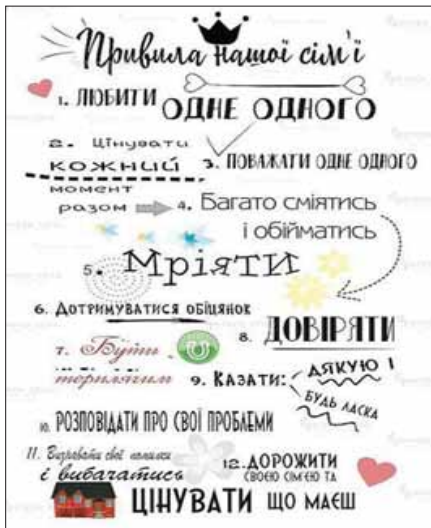 Привила нашої сім'ї
1. ЛЮБИТИ ОДНЕ ОДНОГО
2. Цінувати
кожний
момент
разом
3. ПОВАЖАТИ ОДНЕ ОДНОГО
4. Багато сміятись
і обійматись
5. Мріяти
6. ДОТРИМУВАТИСЯ ОБІЦЯНОК
7. Бути
терплячим
8. ДОВІРЯТИ
9. КАЗАТИ: ДЯКУЮ І
БУДЬ ЛАСКА
10. РОЗПОВІДАТИ ПРО СВОЇ ПРОБЛЕМИ
11. Визнавати свої помилки
і вибачатись
12. ДОРОЖИТИ
СВОЄЮ СІМ'ЄЮ ТА
ЦІНУВАТИ ЩО МАЄШ